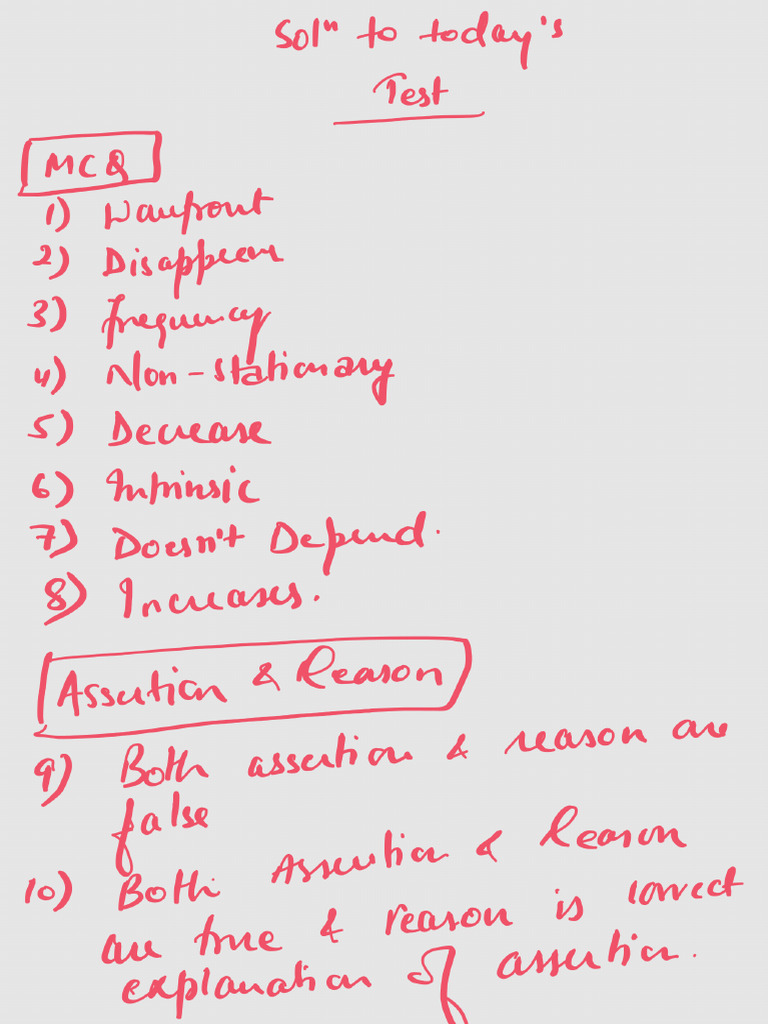 Solⁿ to today's
Test
MCQ
1) Wavefront
2) Disappear
3) frequency
4) Non-stationary
5) Decrease
6) Intrinsic
7) Doesn't Depend.
8) Increases.
Assertion & Reason
9) Both assertion & reason are
false
10) Both Assertion & Reason
are true & reason is correct
explanation of assertion.